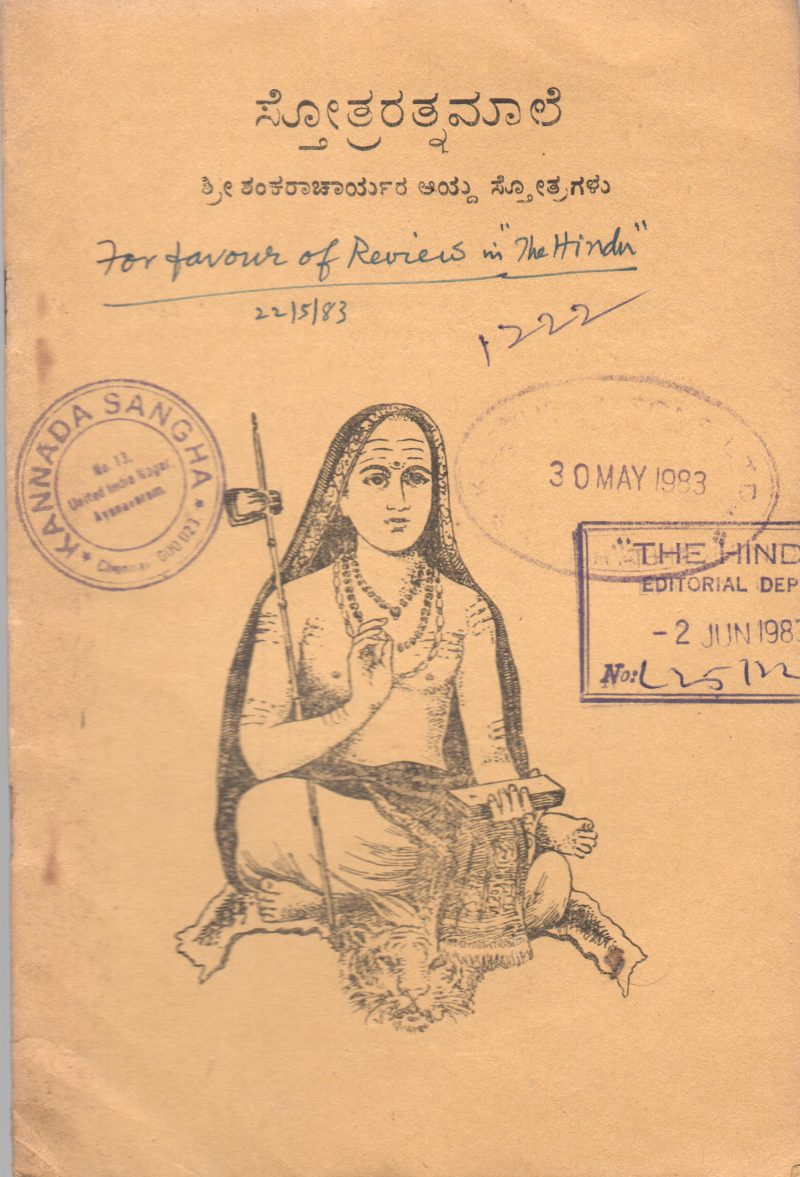 ಸ್ತೋತ್ರರತ್ನಮಾಲೆ
ಶ್ರೀ ಶಂಕರಾಚಾರ್ಯರ ಆಯ್ದ ಸ್ತೋತ್ರಗಳು
For favour of Review in "The Hindu"
22/5/83
1222
KANNADA SANGHA
No. 13,
United India Nagar
Ayanavaram.
Chennai 600 023
30 MAY 1983
"THE HIND
EDITORIAL DEP
- 2 JUN 1983
No: